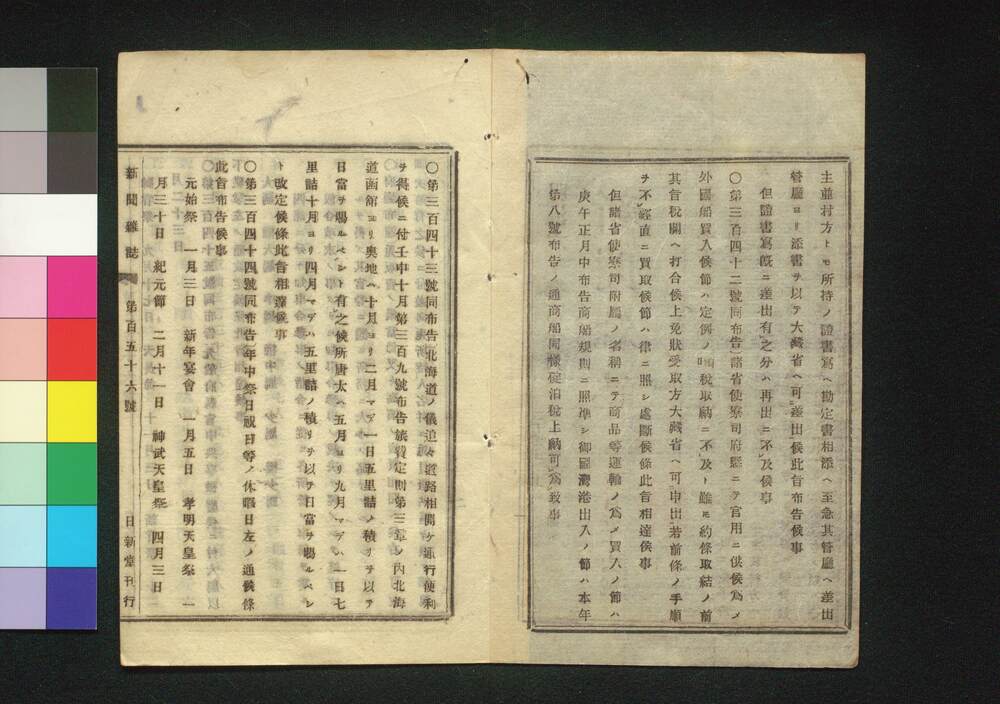 主並村方トモ所持ノ證書寫ヘ勘定書相添ヘ至急其管廳ヘ差出
管廳ヨリ添書ヲ以テ大藏省ヘ可差出候此旨布告候事
但證書寫既ニ差出有之分ハ再出ニ不及候事
〇第三百四十二號同布告諸省使寮司府縣ニテ官用ニ供候爲メ
外國船買入候節ハ定例ノ噸稅取納ニ不及ト雖モ約條取結ノ前
其旨稅關ヘ打合候上免狀受取方大藏省ヘ可申出若前條ノ手順
ヲ不經直ニ買取候節ハ律ニ照シ處斷候條此旨相達候事
但諸省使寮司附屬ノ名稱ニテ商品等運輸ノ爲メ買入ノ節ハ
庚午正月中布告商船規則ニ照準シ御國灣港出入ノ節ハ本年
第八號布告ノ通商船同樣碇泊稅上納可爲致事
〇第三百四十三號同布告北海道ノ儀追々道路相開ケ通行便利
ヲ得候ニ付壬申十月第三百九號布告旅費定則第三章ノ內北海
道函館ヨリ奧地ハ十月ヨリ二月マデ一日五里詰ノ積リヲ以テ
日當ヲ賜ルベシト有之候所唐太ハ五月ヨリ九月マデハ一日七
里詰十月ヨリ四月マデハ五里詰ノ積リヲ以テ日當ヲ賜ルベシ
ト改定候條此旨相達候事
〇第三百四十四號同布告年中祭日祝日等ノ休暇日左ノ通候條
此旨布告候事
元始祭 一月三日 新年宴會 一月五日 孝明天皇祭 一
月三十日 紀元節 二月十一日 神武天皇祭 四月三日
新聞雜誌 第百五十六號 日新堂刊行